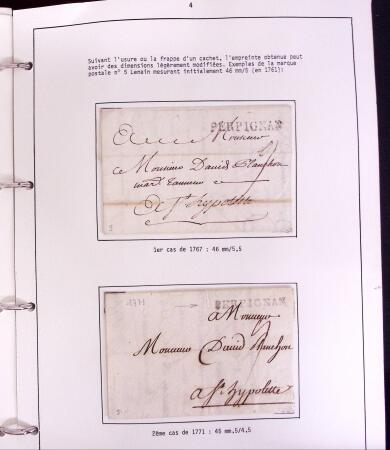 4
Suivant l'usure ou la frappe d'un cachet, l'empreinte obtenue peut
avoir des dimensions légèrement modifiées. Exemples de la marque
postale n° 5 Lemain mesurant initialement 46 mm/5 (en 1761):
PERPIGNAN
Monsieur
a Monsieur David Planchon
a St hypolette
1er cas de 1767 : 46 mm/5,5
1771
PERPIGNAN
a Monsieur
Monsieur David Planchon
a St hypolette
2ème cas de 1771 : 46 mm,5/4,5